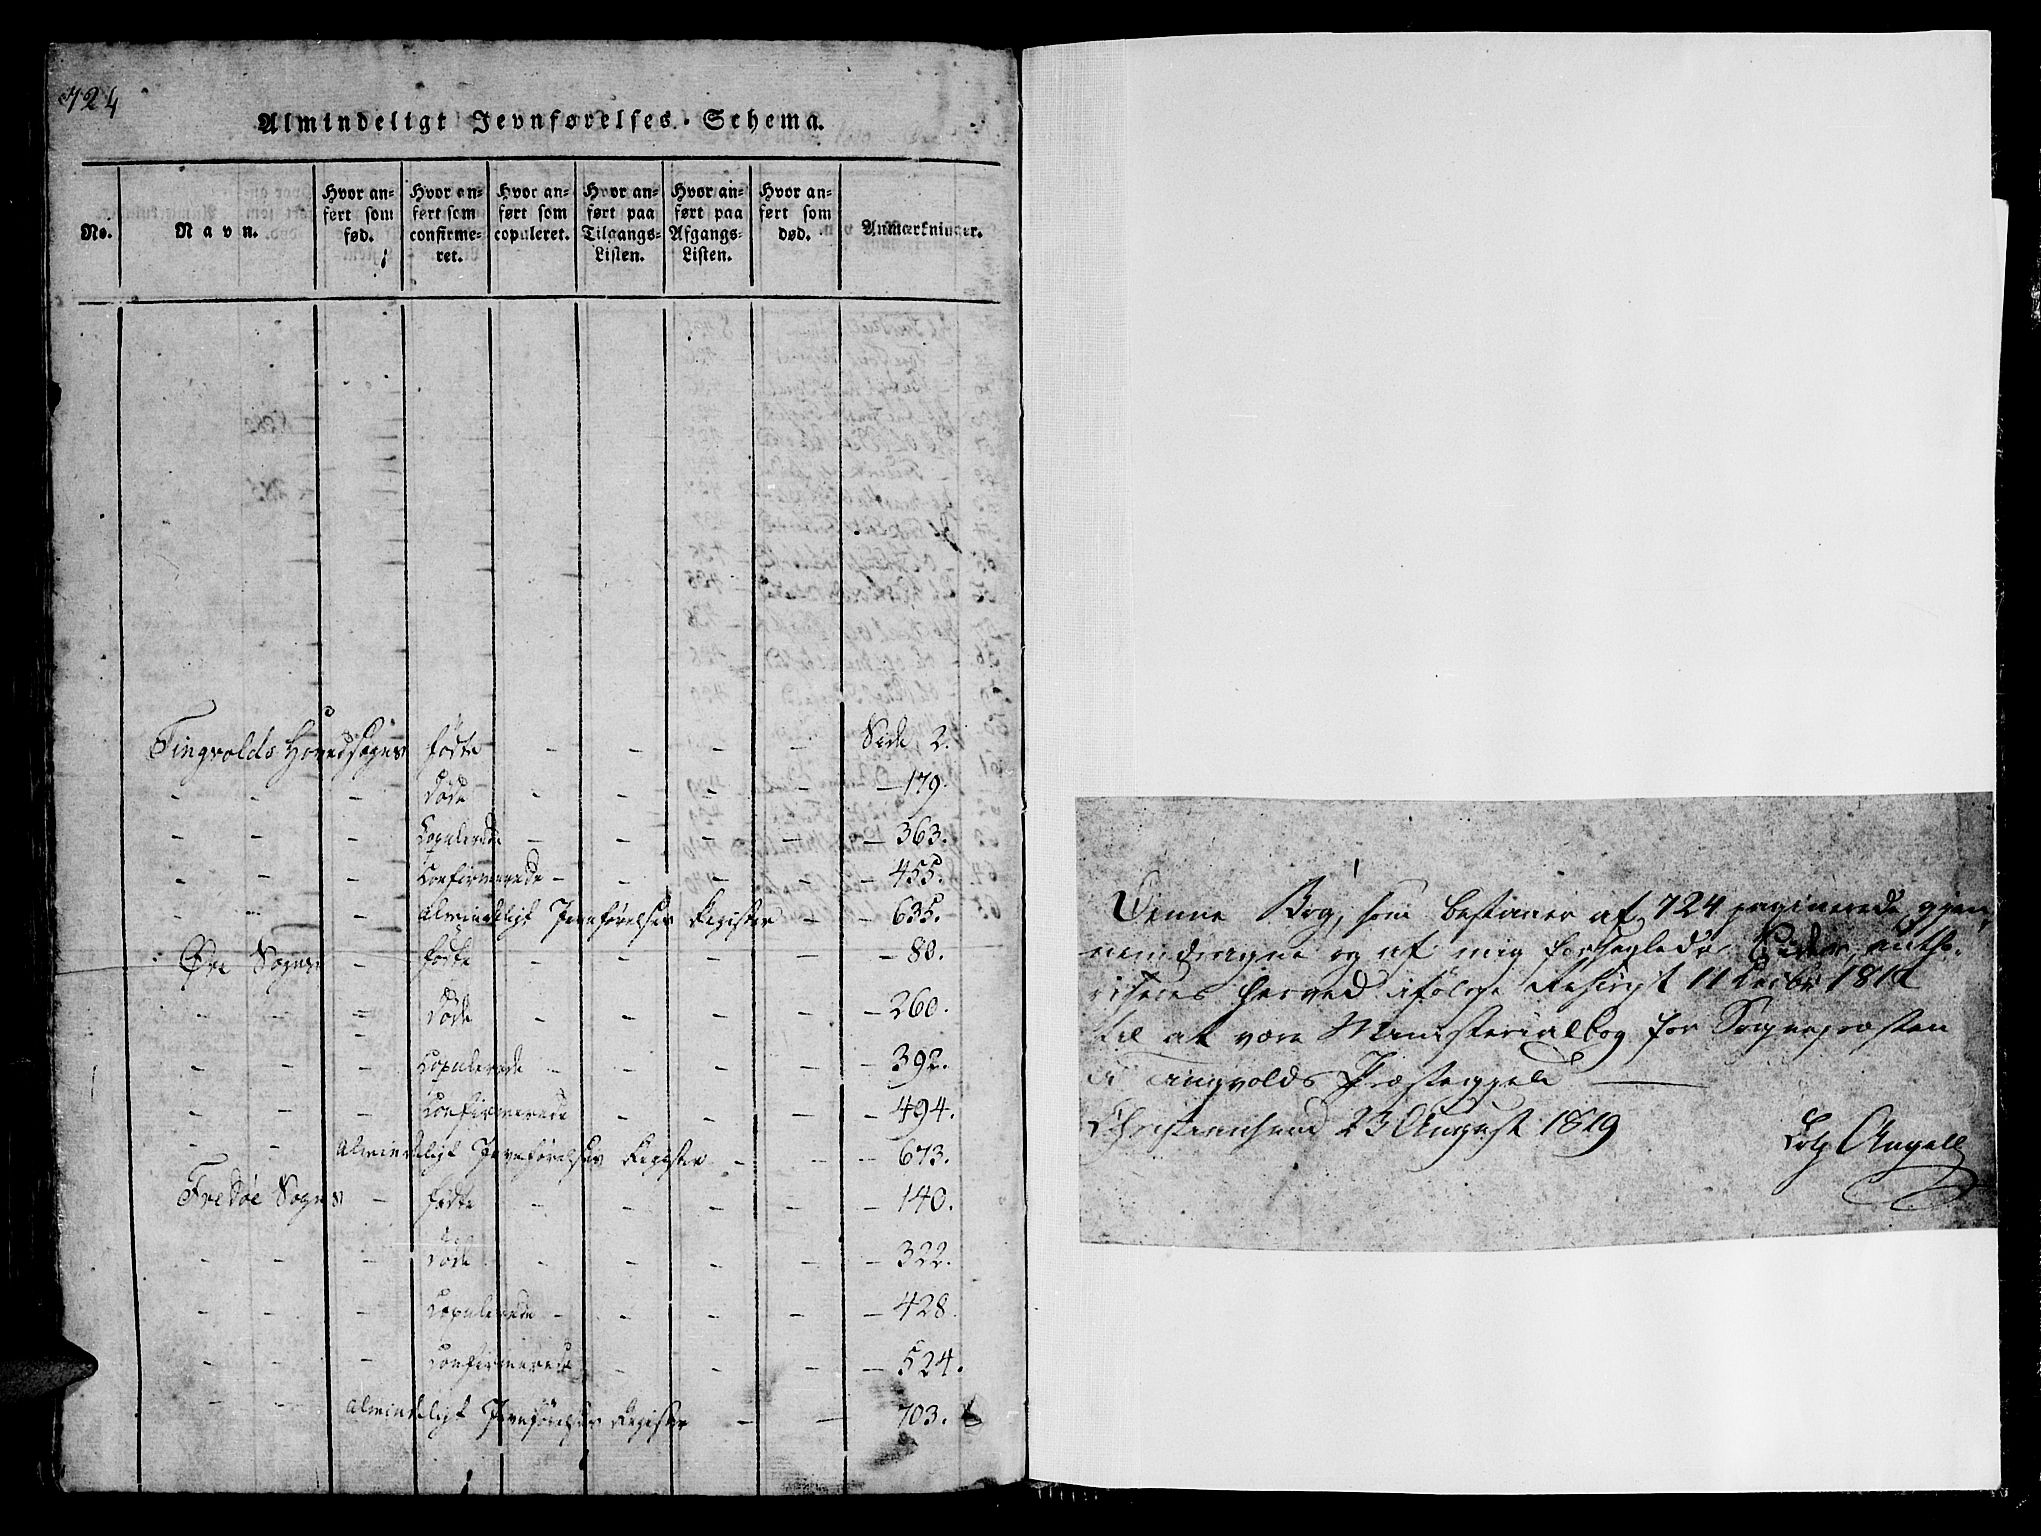 724
Almindeligt Jevnførelses-Schema.
No.
Navn.
Hvor an-
ført som
fød.
Hvor an-
ført som
confirme-
ret.
Hvor an-
ført som
copuleret.
Hvor an-
ført paa
Tilgangs-
Listen.
Hvor an-
ført paa
Afgangs-
Listen.
Hvor an-
ført som
død.
Anmærkninger.
Tingvolds Hovedsogns fødte - - - - Side, 2.
- - - døde - - - - - 179.
- - - Copulerede - - - - - 363.
- - - Confirmerede - - - - - 455.
- - - Almindeligt Jevnførelses Register - - 635.
Øre Sogns - fødte - - - - - 80.
- - - døde - - - - - 260.
- - - Copulerede - - - - - 392.
- - - Confirmerede - - - - 494.
- - Almindeligt Jevnførelses Register - - - 673.
Fredøe Sogns - fødte - - - - - 140.
- - - døde - - - - - 322.
- - - Copulerede - - - - - 428.
- - - Confirmerede - - - - 524.
- - Almindeligt Jevnførelses Register - - 703.
Denne Bog, som bestaaer af 724 paginerede, gjen-
nemdragne og af mig forseglede Sider, autho-
riseres herved ifølge Rescript 11 Decbr 181
til at være Ministerialbog for Sognepræsten
Tingvolds Præstegjeld
Christiansund 23 August 1819
Angell